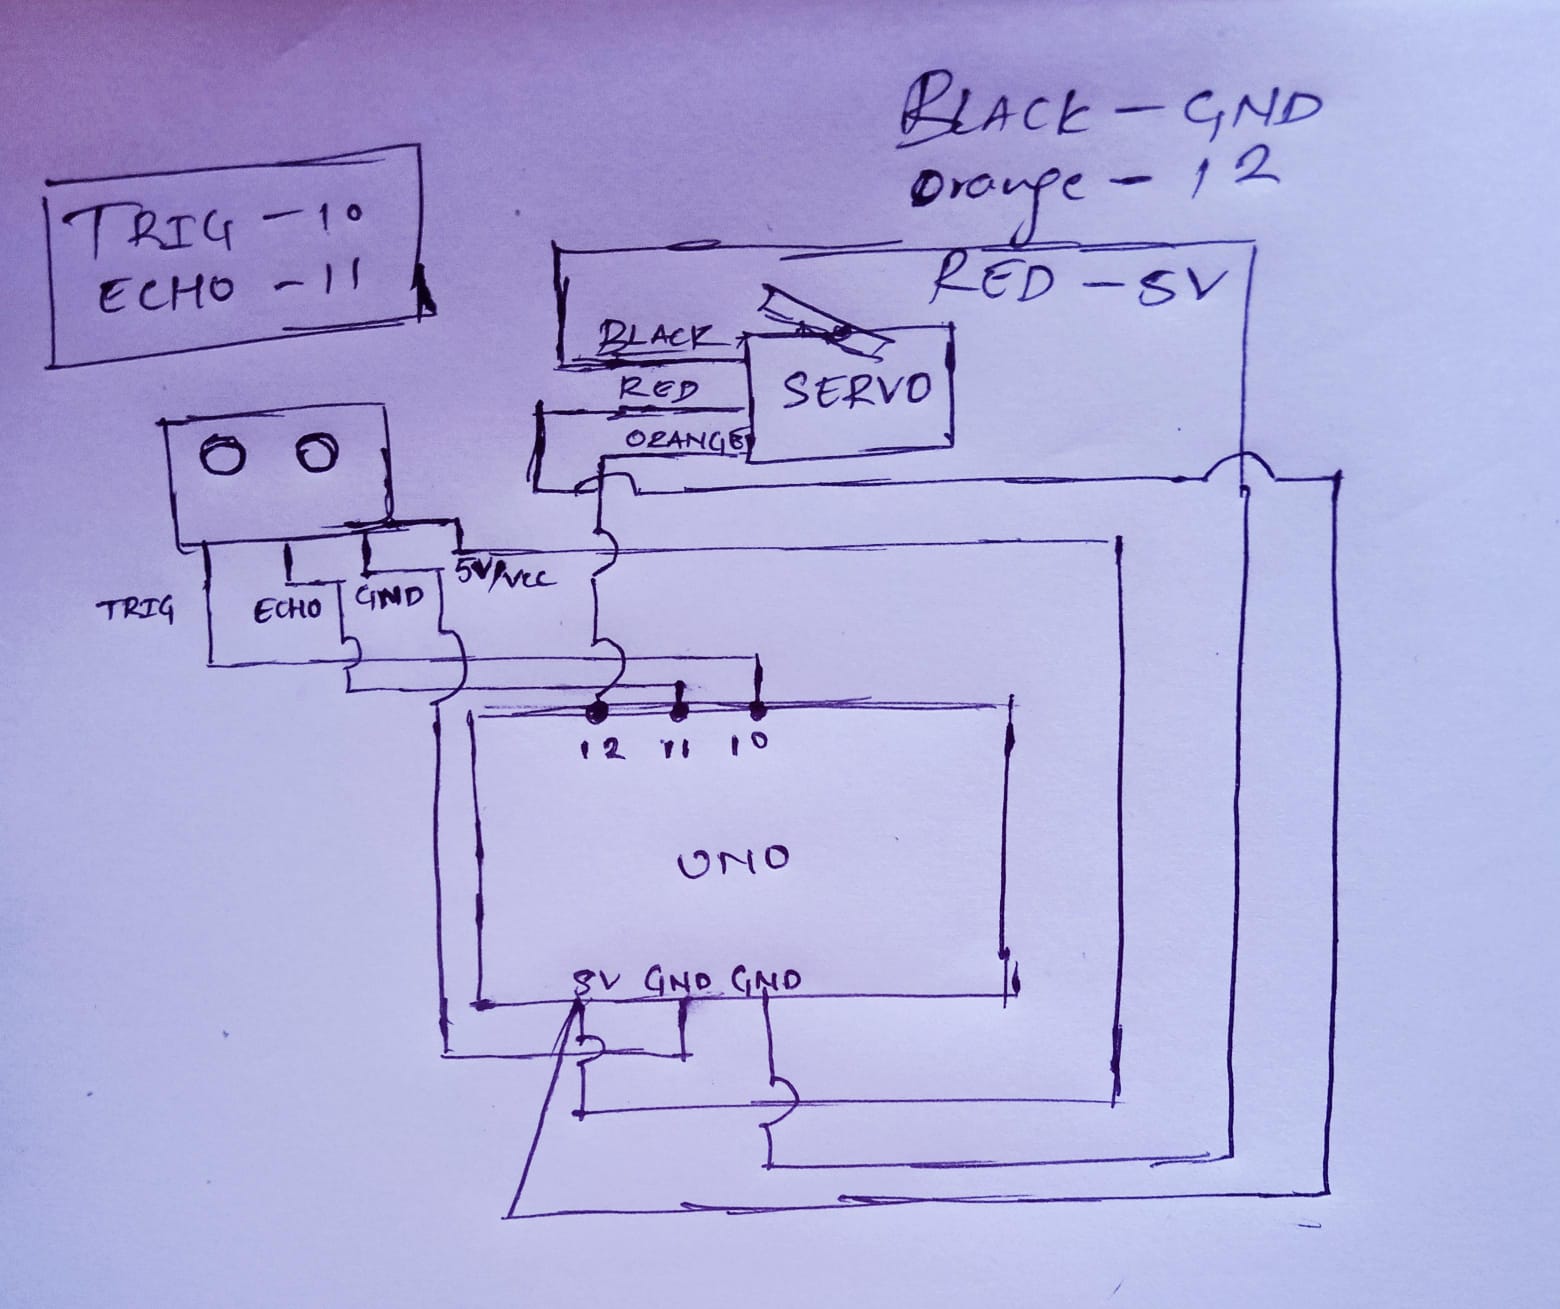 BLACK - GND
Orange - 12
RED - 5V
TRIG - 10
ECHO - 11
BLACK
RED
ORANGE
SERVO
5V/VCC
TRIG
ECHO
GND
12 11 10
UNO
5V GND GND